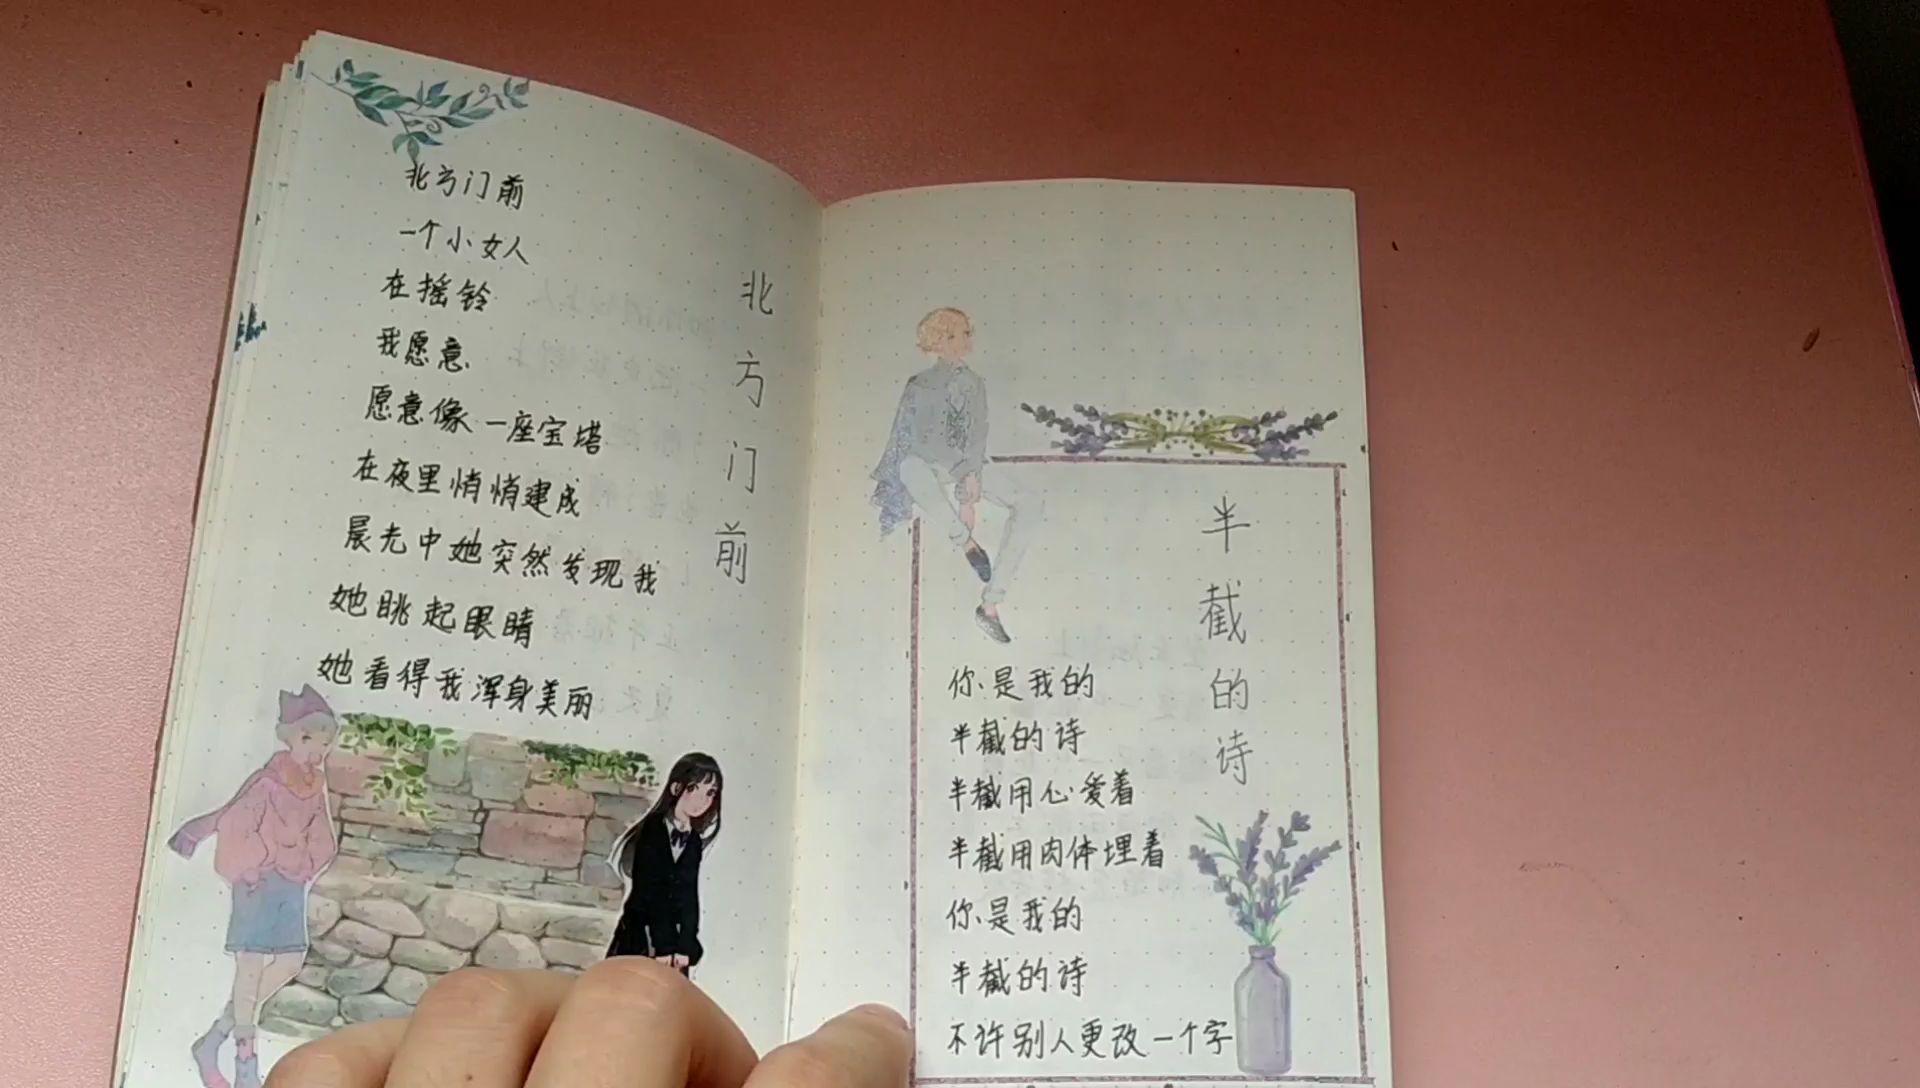 北方门前
一个小女人
在摇铃
我愿意
愿意像一座宝塔
在夜里悄悄建成
晨光中她突然发现我
她眺起眼睛
她看得我浑身美丽
北方门前
半截的诗
你是我的
半截的诗
半截用心爱着
半截用肉体埋着
你是我的
半截的诗
不许别人更改一个字